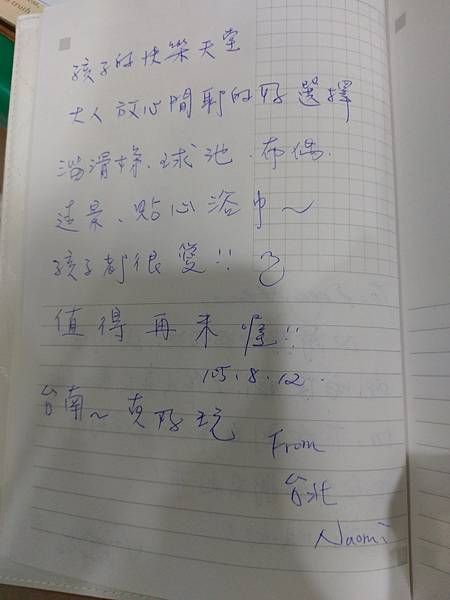 孩子的快樂天堂
大人放心閒聊的好選擇
溜滑梯、球池、布偶、
造景、貼心浴巾～
孩子都很愛!!
值得再來喔!!
105.8.12.
台南～真好玩
From
台北
Naomi